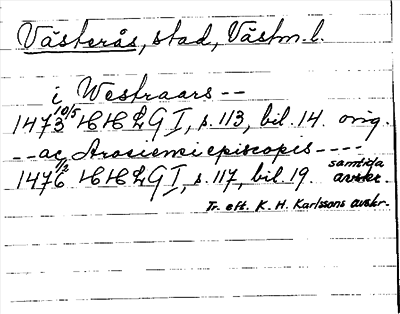 Västerås, stad, Västm. l.
i Westraars --
1473 10/5 HHLG I, s. 113, bil. 14. orig.
-- ac Arosiensi episcopis ----
1476 1/2 HHLG I, s. 117, bil. 19. samtida avskr.
Tr. eft. K. H. Karlssons avskr.